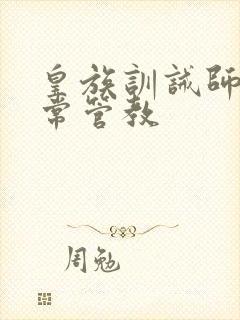 皇族訓誡師
常管教
周勉